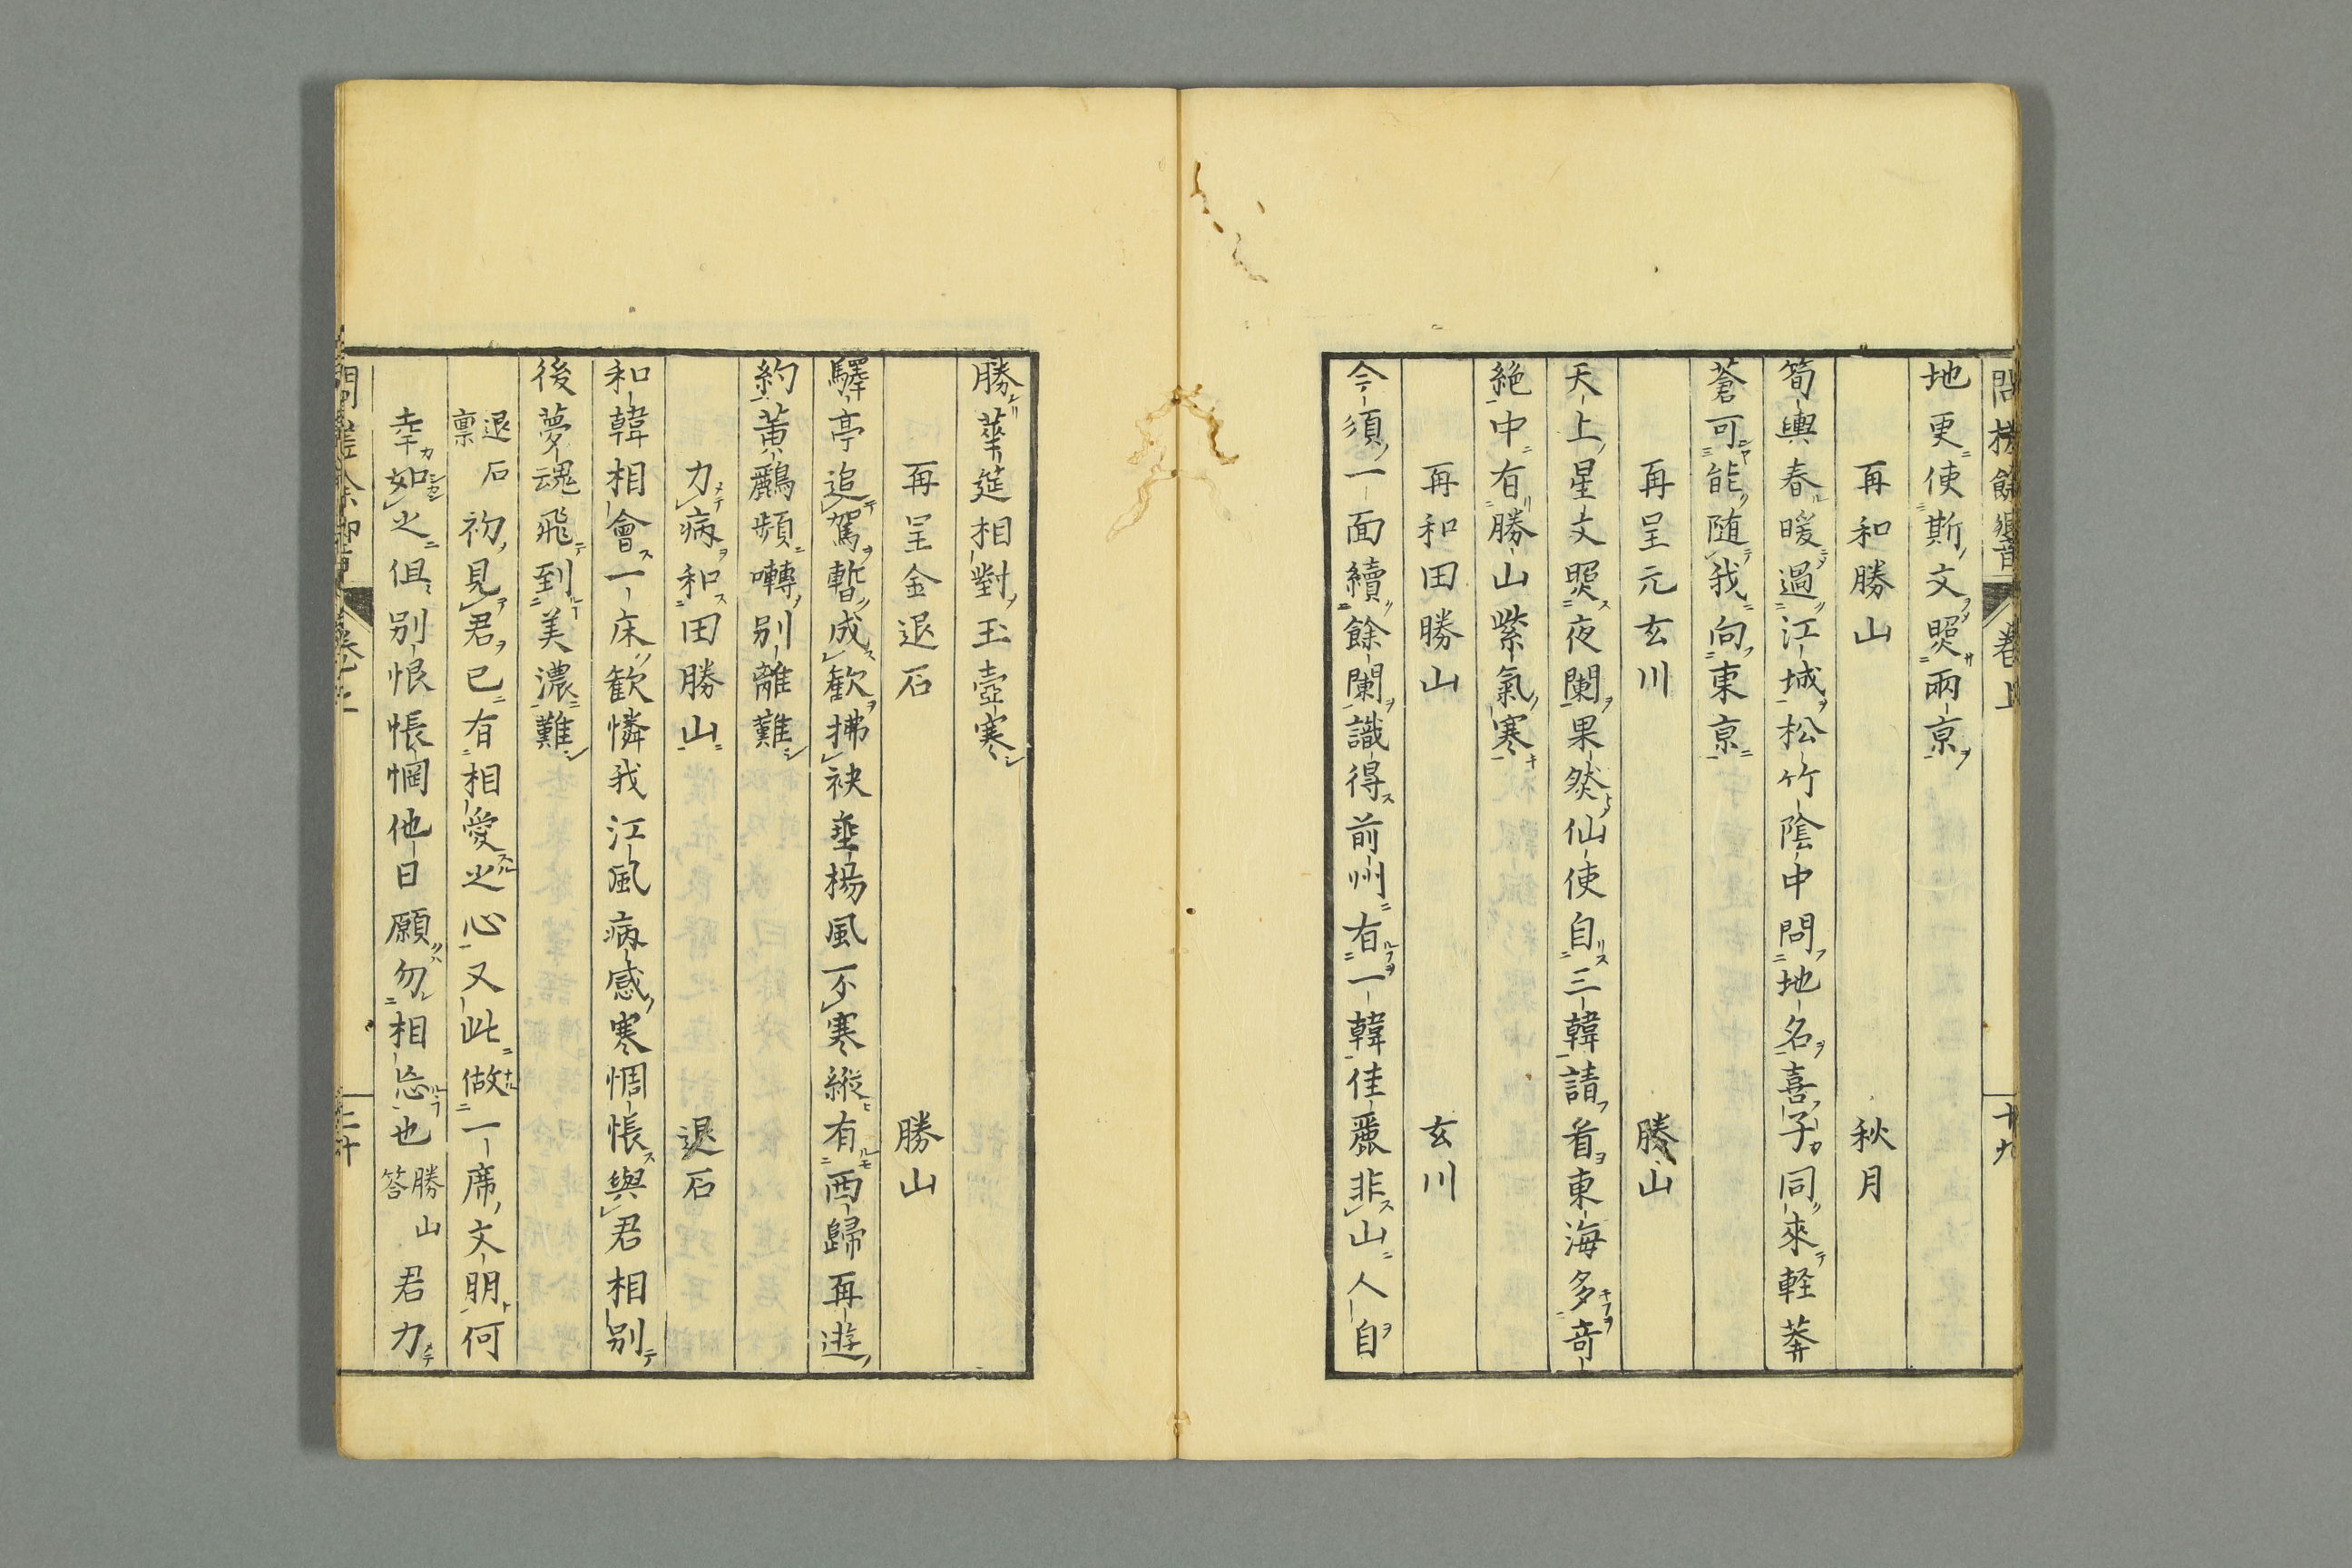 問槎餘響 卷上 十九
地更使斯文照兩京
再和勝山 秋月
筍輿春暖過江城松竹陰中問地名喜子同來軽莽
蒼可能随我向東京
再呈元玄川 勝山
天上星文照夜闌果然仙使自三韓請看東海多奇
絶中有勝山紫氣寒
再和田勝山 玄川
今須一面續餘闌識得前州有一韓佳麗非山人自
勝華筵相對玉壺寒
再呈金退石 勝山
驛亭追駕暫成歓拂袂垂楊風不寒縱有西歸再遊
約黄鸝頻囀別離難
力病和田勝山 退石
和韓相會一床歓憐我江風病感寒惆悵與君相別
後夢魂飛到美濃難
稟退石 初見君已有相愛之心又此做一席文朋何
幸如之但別恨悵惘他日願勿相忘也 答勝山 君力
卷上 二十